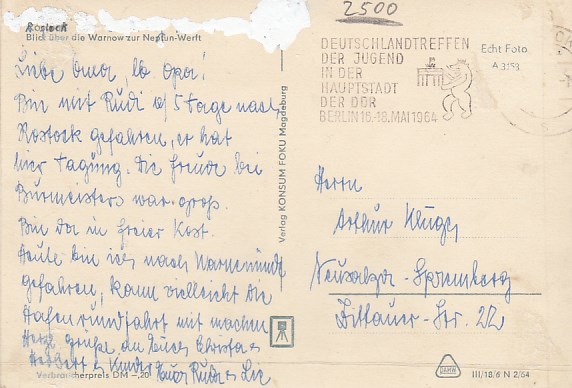 2500
Rostock
Blick über die Warnow zur Neptun-Werft
Liebe Oma, lb Opa!
Bin mit Rudi 5 Tage nach
Rostock gefahren, er hat
hier Tagung. Die Freude bei
Burmeisters war groß.
Bin da in freier Kost.
Heute bin ich nach Warnemünde
gefahren, kann vielleicht die
Hafenrundfahrt mit machen
Herzl. grüße an Euch Christa
Kinder Eure Rudi
Verbraucherpreis DM -,20
Verlag KONSUM FOKU Magdeburg
DEUTSCHLANDTREFFEN
DER JUGEND
IN DER
HAUPTSTADT
DER DDR
BERLIN 16.-18. MAI 1964
Echt Foto
A 3153
Herrn
Arthur Kluge,
Neusalza-Spremberg
Zittauer-Str. 22
III/18/6 N 2/64